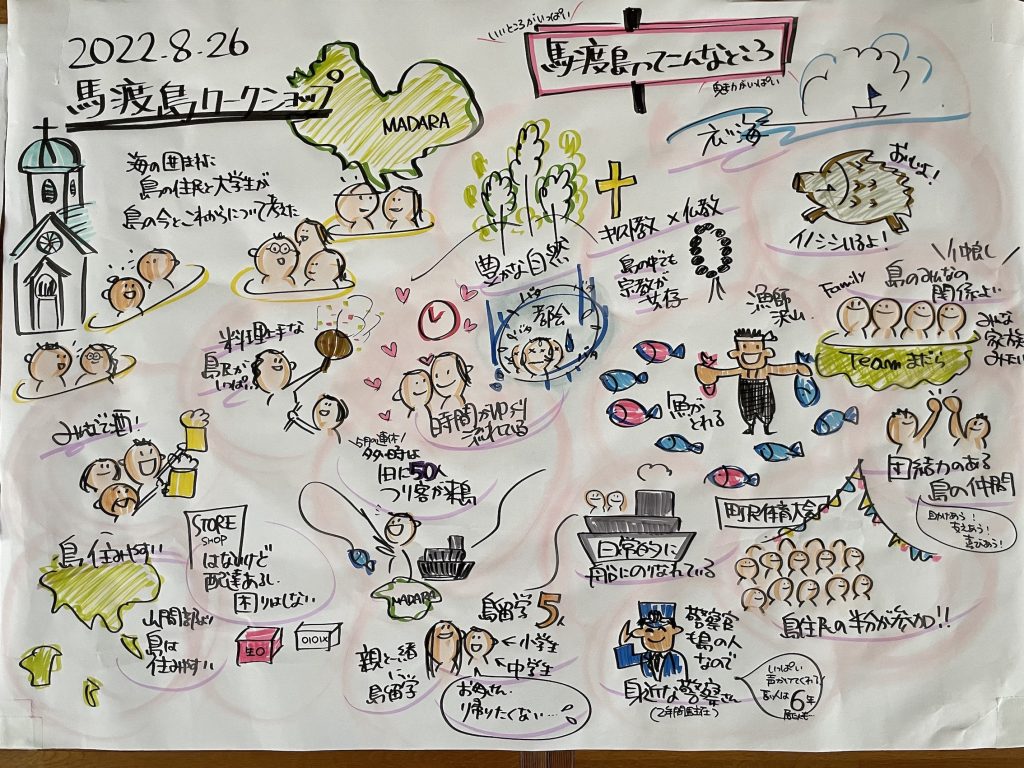 2022.8.26
馬渡島ワークショップ
MADARA
海の囲まれに
島の住民と大学生が
島の今とこれからについて考えた
いいところがいっぱい
馬渡島ってこんなところ
魅力がいっぱい
広い海
豊かな自然
キリスト教×仏教
島の中でも
宗教が
共存
おいしいよ!
イノシシいるよ!
仲良し
Family
島のみんなの
関係よい
みんな
家族
みたい
Teamまだら
団結力のある
島の仲間
助けあう!
支えあう!
喜びあう!
料理上手な
島民が
いっぱい
都会
時間がゆっくり
流れている
漁師
沢山
魚が
とれる
みんなで酒!
5月の連休
多い時は
1日に50人
つり客が来島
MADARA
日常的に
船にのりなれている
町民体育大会
島住民の半分が参加!!
島住みやすい
山間部より
島は
住みやすい
STORE
SHOP
はないけど
配達あるし、
困りはしない
生〇
OIOIX
島留学5人
←小学生
←中学生
親と一緒
に
島留学
お母さん、
帰りたくない…
警察官
も島の人
なので
身近な警察さん
(2年間駐在)
いっぱい
声かけてくれる
長い人は6年